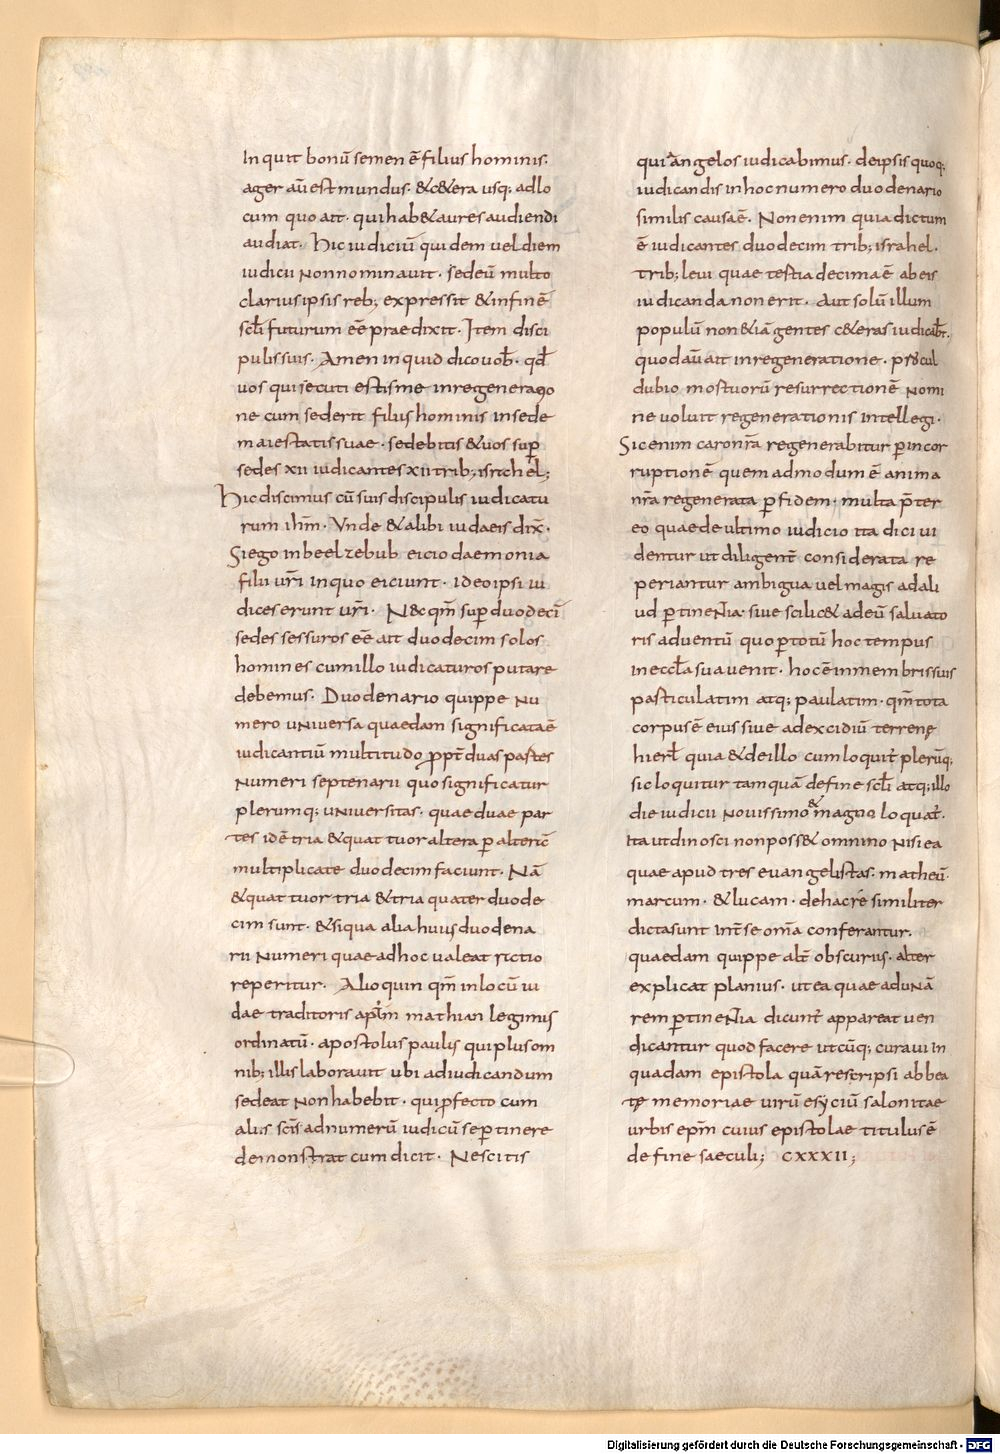 Inquit bonū semen ē filius hominis·
ager aū est mundus· &c&era usq; ad lo
cum quo ait· qui hab& aures audiendi
audiat· Hic iudiciū quidem uel diem
iudicii non nominauit· sed eū multo
clarius ipsis reb; expressit & in finē
scłi futurum eē praedixit· Item disci
pulis suis· Amen inquid dico uob̄· qđ
uos qui secuti estis me in regeneratio
ne cum sederit filius hominis in sede
maiestatis suae· sedebitis & uos sup̄
sedes xii iudicantes xii trib; isrthel;
Hic discimus cū suis discipulis iudicatu
rum ihm̄· Vnde & alibi iudaeis dix̄·
Si ego in beelzebub eicio daemonia
filii ur̄i in quo eiciunt· ideo ipsi iu
dices erunt ur̄i· N&c qm̄ sup̄ duodeci
sedes sessuros eē ait duodecim solos
homines cum illo iudicaturos putare
debemus· Duodenario quippe nu
mero uniuersa quaedam significata ē
iudicantiū multitudo ꝓpt̄ duas partes
numeri septenarii quo significatur
plerumq; uniuersitas· quae duae par
tes idē tria & quattuor altera ꝑ alterā
multiplicate duodecim faciunt· Nā
& quattuor tria & tria quater duode
cim sunt· & si qua alia huius duodena
rii numeri quae ad hoc ualeat rictio
reperitur· Alioquin qm̄ in locū iu
dae traditoris apłm mathian legimus
ordinatū· apostolus paulus qui plus om
nib; illis laborauit ubi ad iudicandum
sedeat non habebit· qui ꝓfecto cum
aliis scīs ad numerū iudicū se ꝑtinere
demonstrat cum dicit· Nescitis
qui angelos iudicabimus· de ipsis quoq;
iudicandis in hoc numero duodenario
similis causa ē· Non enim quia dictum
ē iudicantes duodecim trib; israhel·
trib; leui quae tertia decima ē ab eis
iudicanda non erit· Aut solū illum
populū non &iā gentes c&eras iudicab̄t·
quod aū ait in regeneratione· ꝓcul
dubio mortuorū resurrectionē nomi
ne uoluit regenerationis intellegi·
Sic enim caro nr̄a regenerabitur ꝑ incor
ruptionē quemadmodum ē anima
nr̄a regenerata ꝑ fidem· multa p̄ter
eo quae de ultimo iudicio ita dici ui
dentur ut diligent̄ considerata re
periantur ambigua uel magis ad ali
ud ꝑtinentia· siue scilic& ad eū saluato
ris aduentū quo ꝑ totū hoc tempus
in eccła sua uenit· hoc ē in membris suis
particulatim atq; paulatim· qm̄ tota
corpus ē eius siue ad excidiū terrenę
hierł quia & de illo cum loquit̄ plerūq;
sic loquitur tamquā de fine scłi atq; illo
die iudicii nouissimo & magno loquat̄·
Ita ut dinosci non poss& omnino nisi ea
quae apud tres euangelistas· matheū·
marcum· & lucam· de hac re similiter
dicta sunt int̄ se om̄a conferantur·
quaedam quippe alt̄ obscurius· alter
explicat planius· ut ea quae ad unā
rem ꝑtinentia dicunt̄ appareat uen
dicantur quod facere utcūq; curaui in
quadam epistola quā rescripsi ab bea
tę memoriae uirū esyciū salonitae
urbis epm̄ cuius epistolae titulus ē
de fine saeculi; cxxxii;
Digitalisierung gefördert durch die Deutsche Forschungsgemeinschaft - DFG